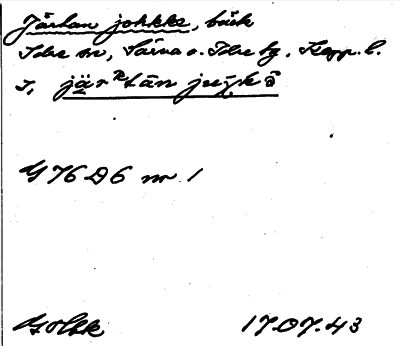 Järtan jokke, bäck
Idre sn, Särna o. Idre tg, Kopp. l.
I, järtan jukkɔ̄
G 76 D6 nr 1
17.07.43